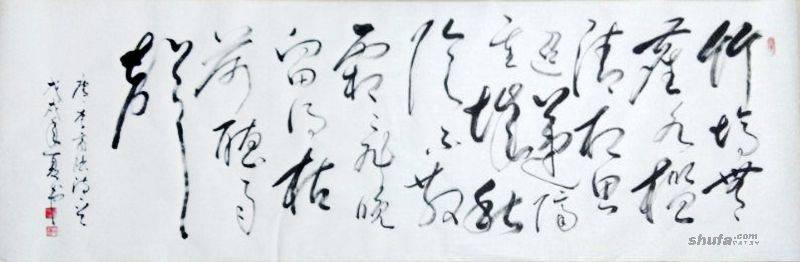 竹塢無
塵水檻
清相思
迢遞隔
重城秋
陰不散
霜飛晚
留得枯
荷聽雨
聲
唐李商隐诗
戊戌年夏
shufa.com